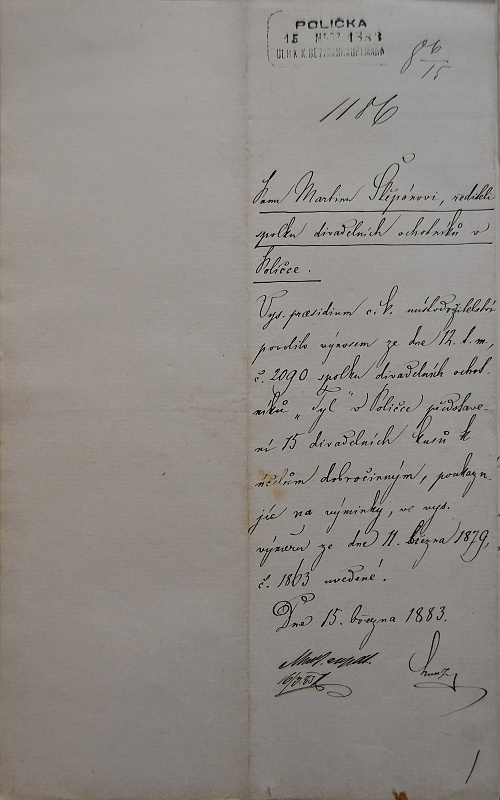 POLIČKA
15 MÄRZ 1883
DER K.K. BEZIRKSHAUPTMANN
86/15
1186
Panu Martinu Štěpánovi, řediteli
spolku divadelních ochotníků v
Poličce.
Vys. præsidium c. k. místodržitelství
povolilo výnosem ze dne 12. t. m.,
č. 2090 spolku divadelních ochot-
níků „Tyl" v Poličce představe-
ní 15 divadelních kusů k
účelům dobročinným, poukazu-
jíc na výminky, ve vys.
výměru ze dne 11. března 1879,
č. 1863 uvedené.
Dne 15. března 1883.
16/3 83
1